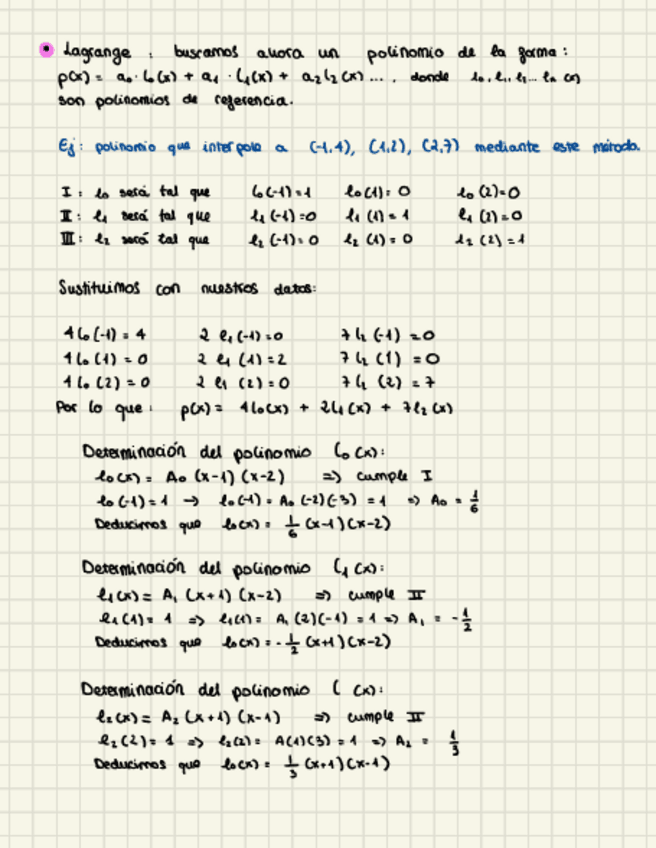 Lagrange : buscamos ahora un polinomio de la forma:
p(x) = a₀ · l₀(x) + a₁ · l₁(x) + a₂l₂(x) ... , donde l₀, l₁, l₂... lₙ (x)
son polinomios de referencia.
Ej: polinomio que interpola a (-1,4), (1,2), (2,7) mediante este método.
I : l₀ será tal que l₀(-1)=1 l₀(1)=0 l₀(2)=0
II : l₁ será tal que l₁(-1)=0 l₁(1)=1 l₁(2)=0
III : l₂ será tal que l₂(-1)=0 l₂(1)=0 l₂(2)=1
Sustituimos con nuestros datos:
4l₀(-1) = 4 2 l₁(-1)=0 7l₂(-1)=0
4l₀(1) = 0 2 l₁(1)=2 7l₂(1)=0
4l₀(2) = 0 2 l₁(2)=0 7l₂(2)=7
Por lo que: p(x) = 4l₀(x) + 2l₁(x) + 7l₂(x)
Determinación del polinomio l₀(x):
l₀(x) = A₀ (x-1)(x-2) => cumple I
l₀(-1)=1 → l₀(-1) = A₀(-2)(-3) = 1 => A₀ = 1/6
Deducimos que l₀(x) = 1/6 (x-1)(x-2)
Determinación del polinomio l₁(x):
l₁(x) = A₁ (x+1)(x-2) => cumple II
l₁(1) = 1 => l₁(1) = A₁(2)(-1) = 1 => A₁ = -1/2
Deducimos que l₀(x) = -1/2 (x+1)(x-2)
Determinación del polinomio l (x):
l₂(x) = A₂ (x+1)(x-1) => cumple II
l₂(2) = 1 => l₂(2) = A(1)(3) = 1 => A₂ = 1/3
Deducimos que l₀(x) = 1/3 (x+1)(x-1)